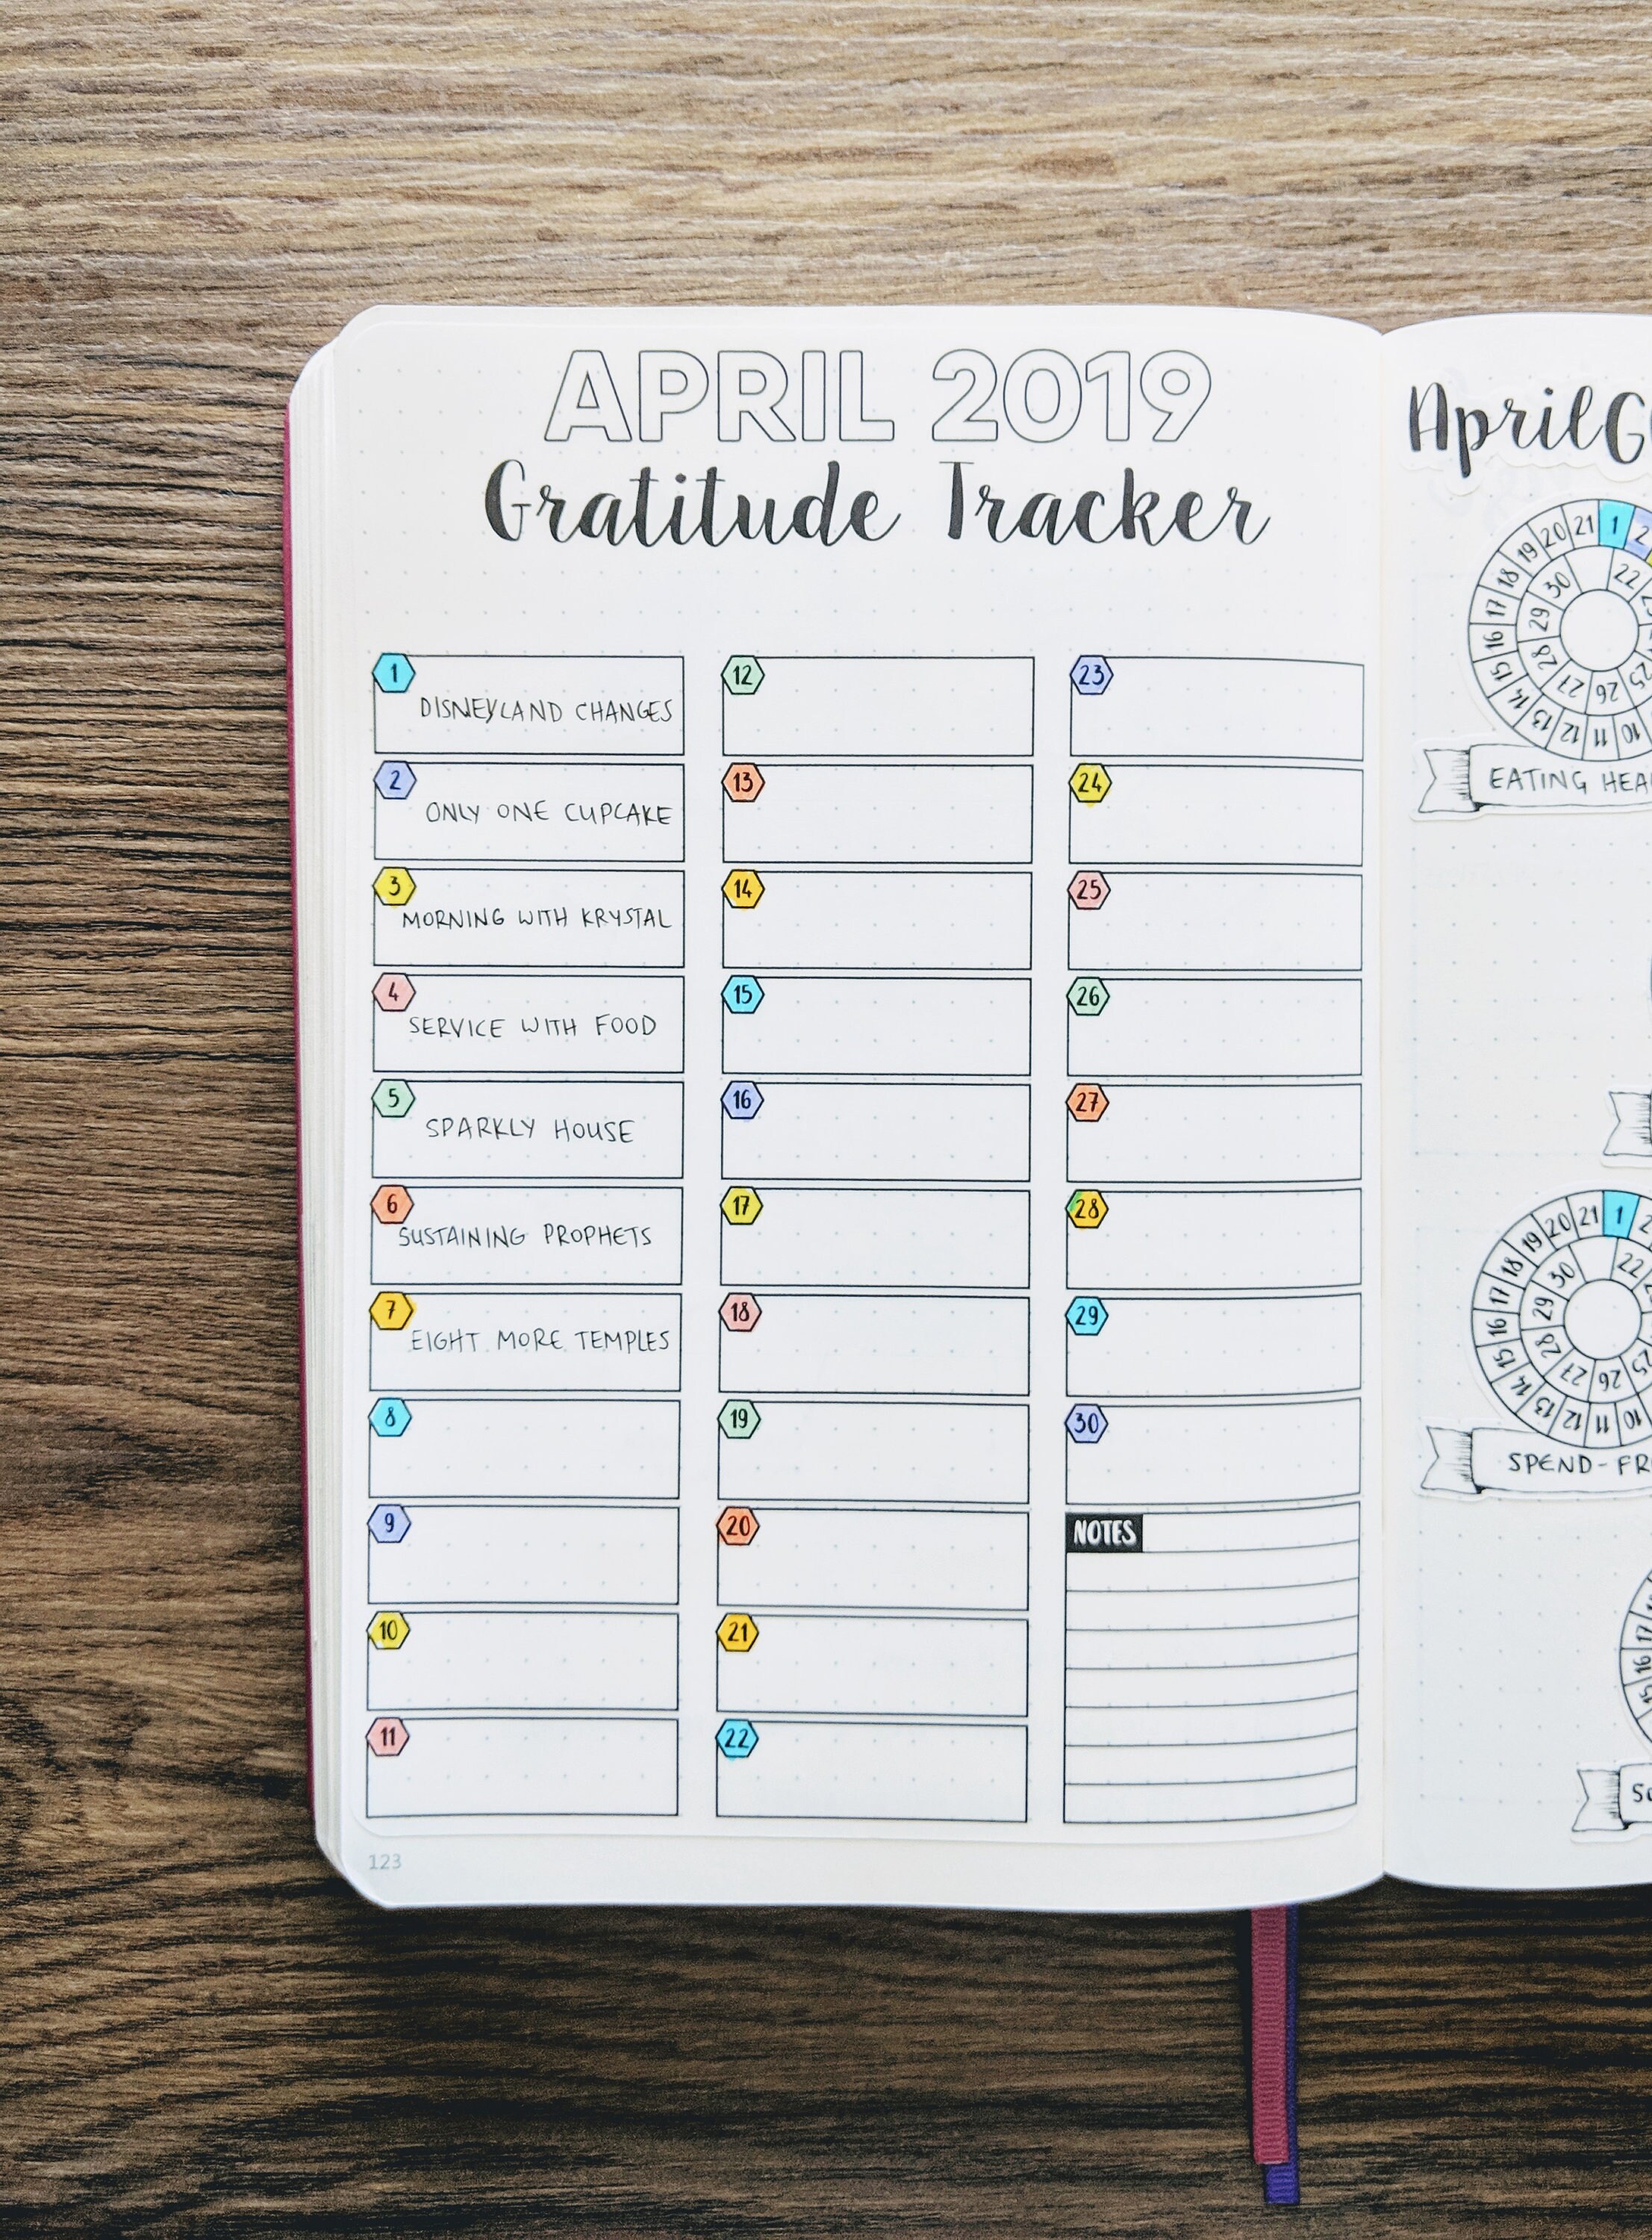 APRIL 2019
Gratitude Tracker
1
DISNEYLAND CHANGES
2
ONLY ONE CUPCAKE
3
MORNING WITH KRYSTAL
4
SERVICE WITH FOOD
5
SPARKLY HOUSE
6
SUSTAINING PROPHETS
7
EIGHT MORE TEMPLES
8
9
10
11
12
13
14
15
16
17
18
19
20
21
22
23
24
25
26
27
28
29
30
NOTES
123
April
1
2
22
25
26
27
28
29
30
10
11
12
13
14
15
16
17
18
19
20
21
EATING
1
22
25
26
27
28
29
30
10
11
12
13
14
15
16
17
18
19
20
21
SPEND-
17
16